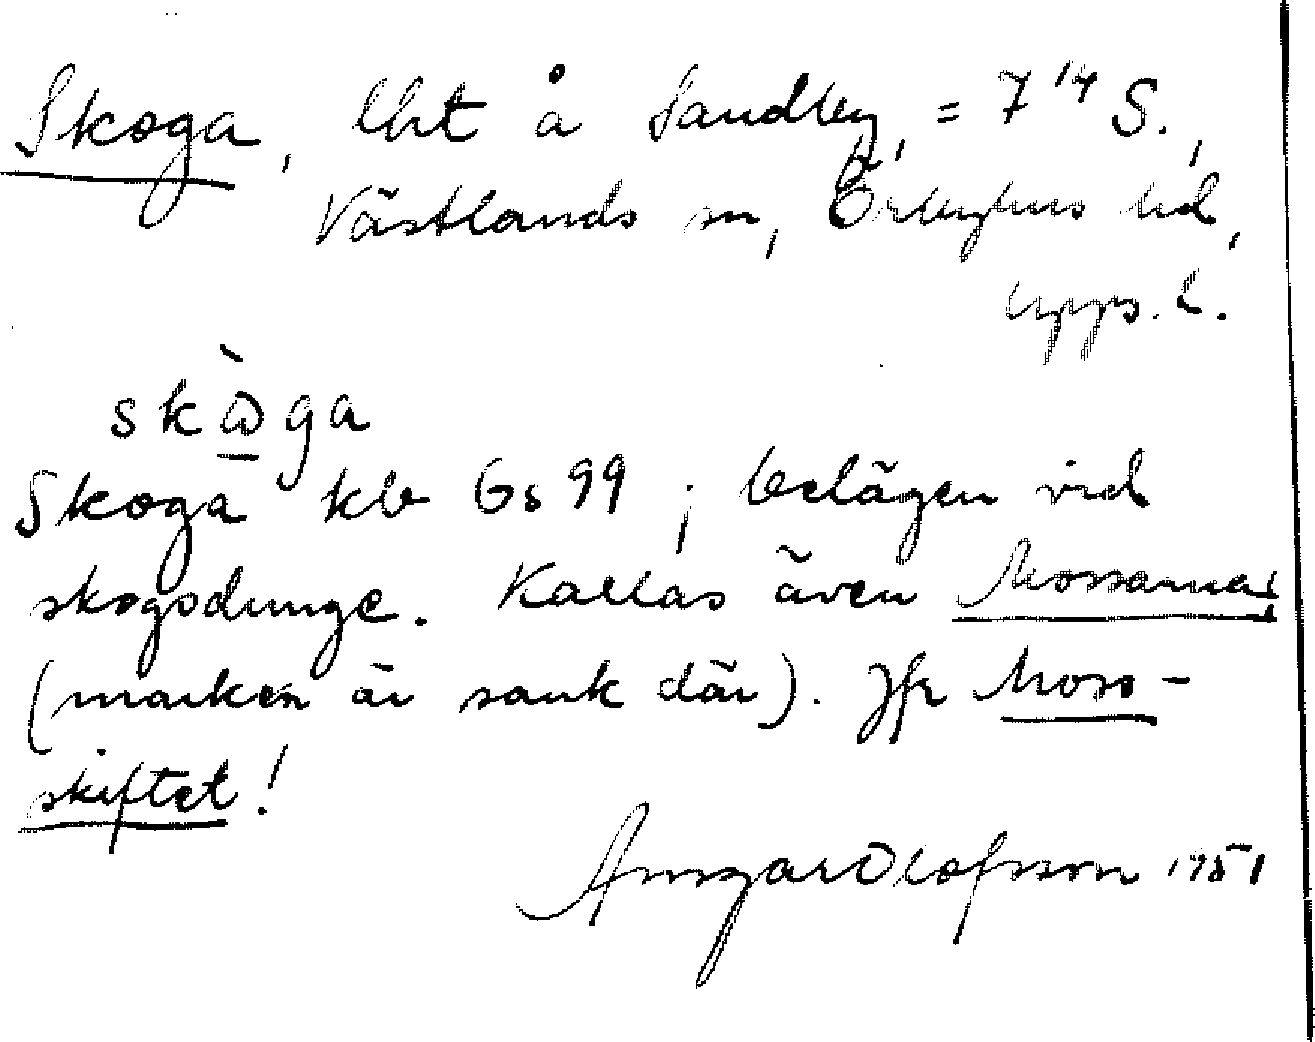 Skoga, lht å Sandby, = 7 14 S.,
Västlands sn, Örbyhus hd,
Upps. l.
skὼ̲ga
Skoga kb Gs 99 ; belägen vid
skogsdunge. Kallas även Mossarna
(marken är sank där). Jfr Moss-
skiftet!
Ansgar Olofsson 1951